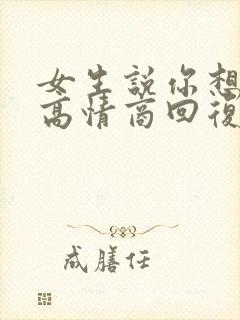 女生說你想
高情商回復
成膳任